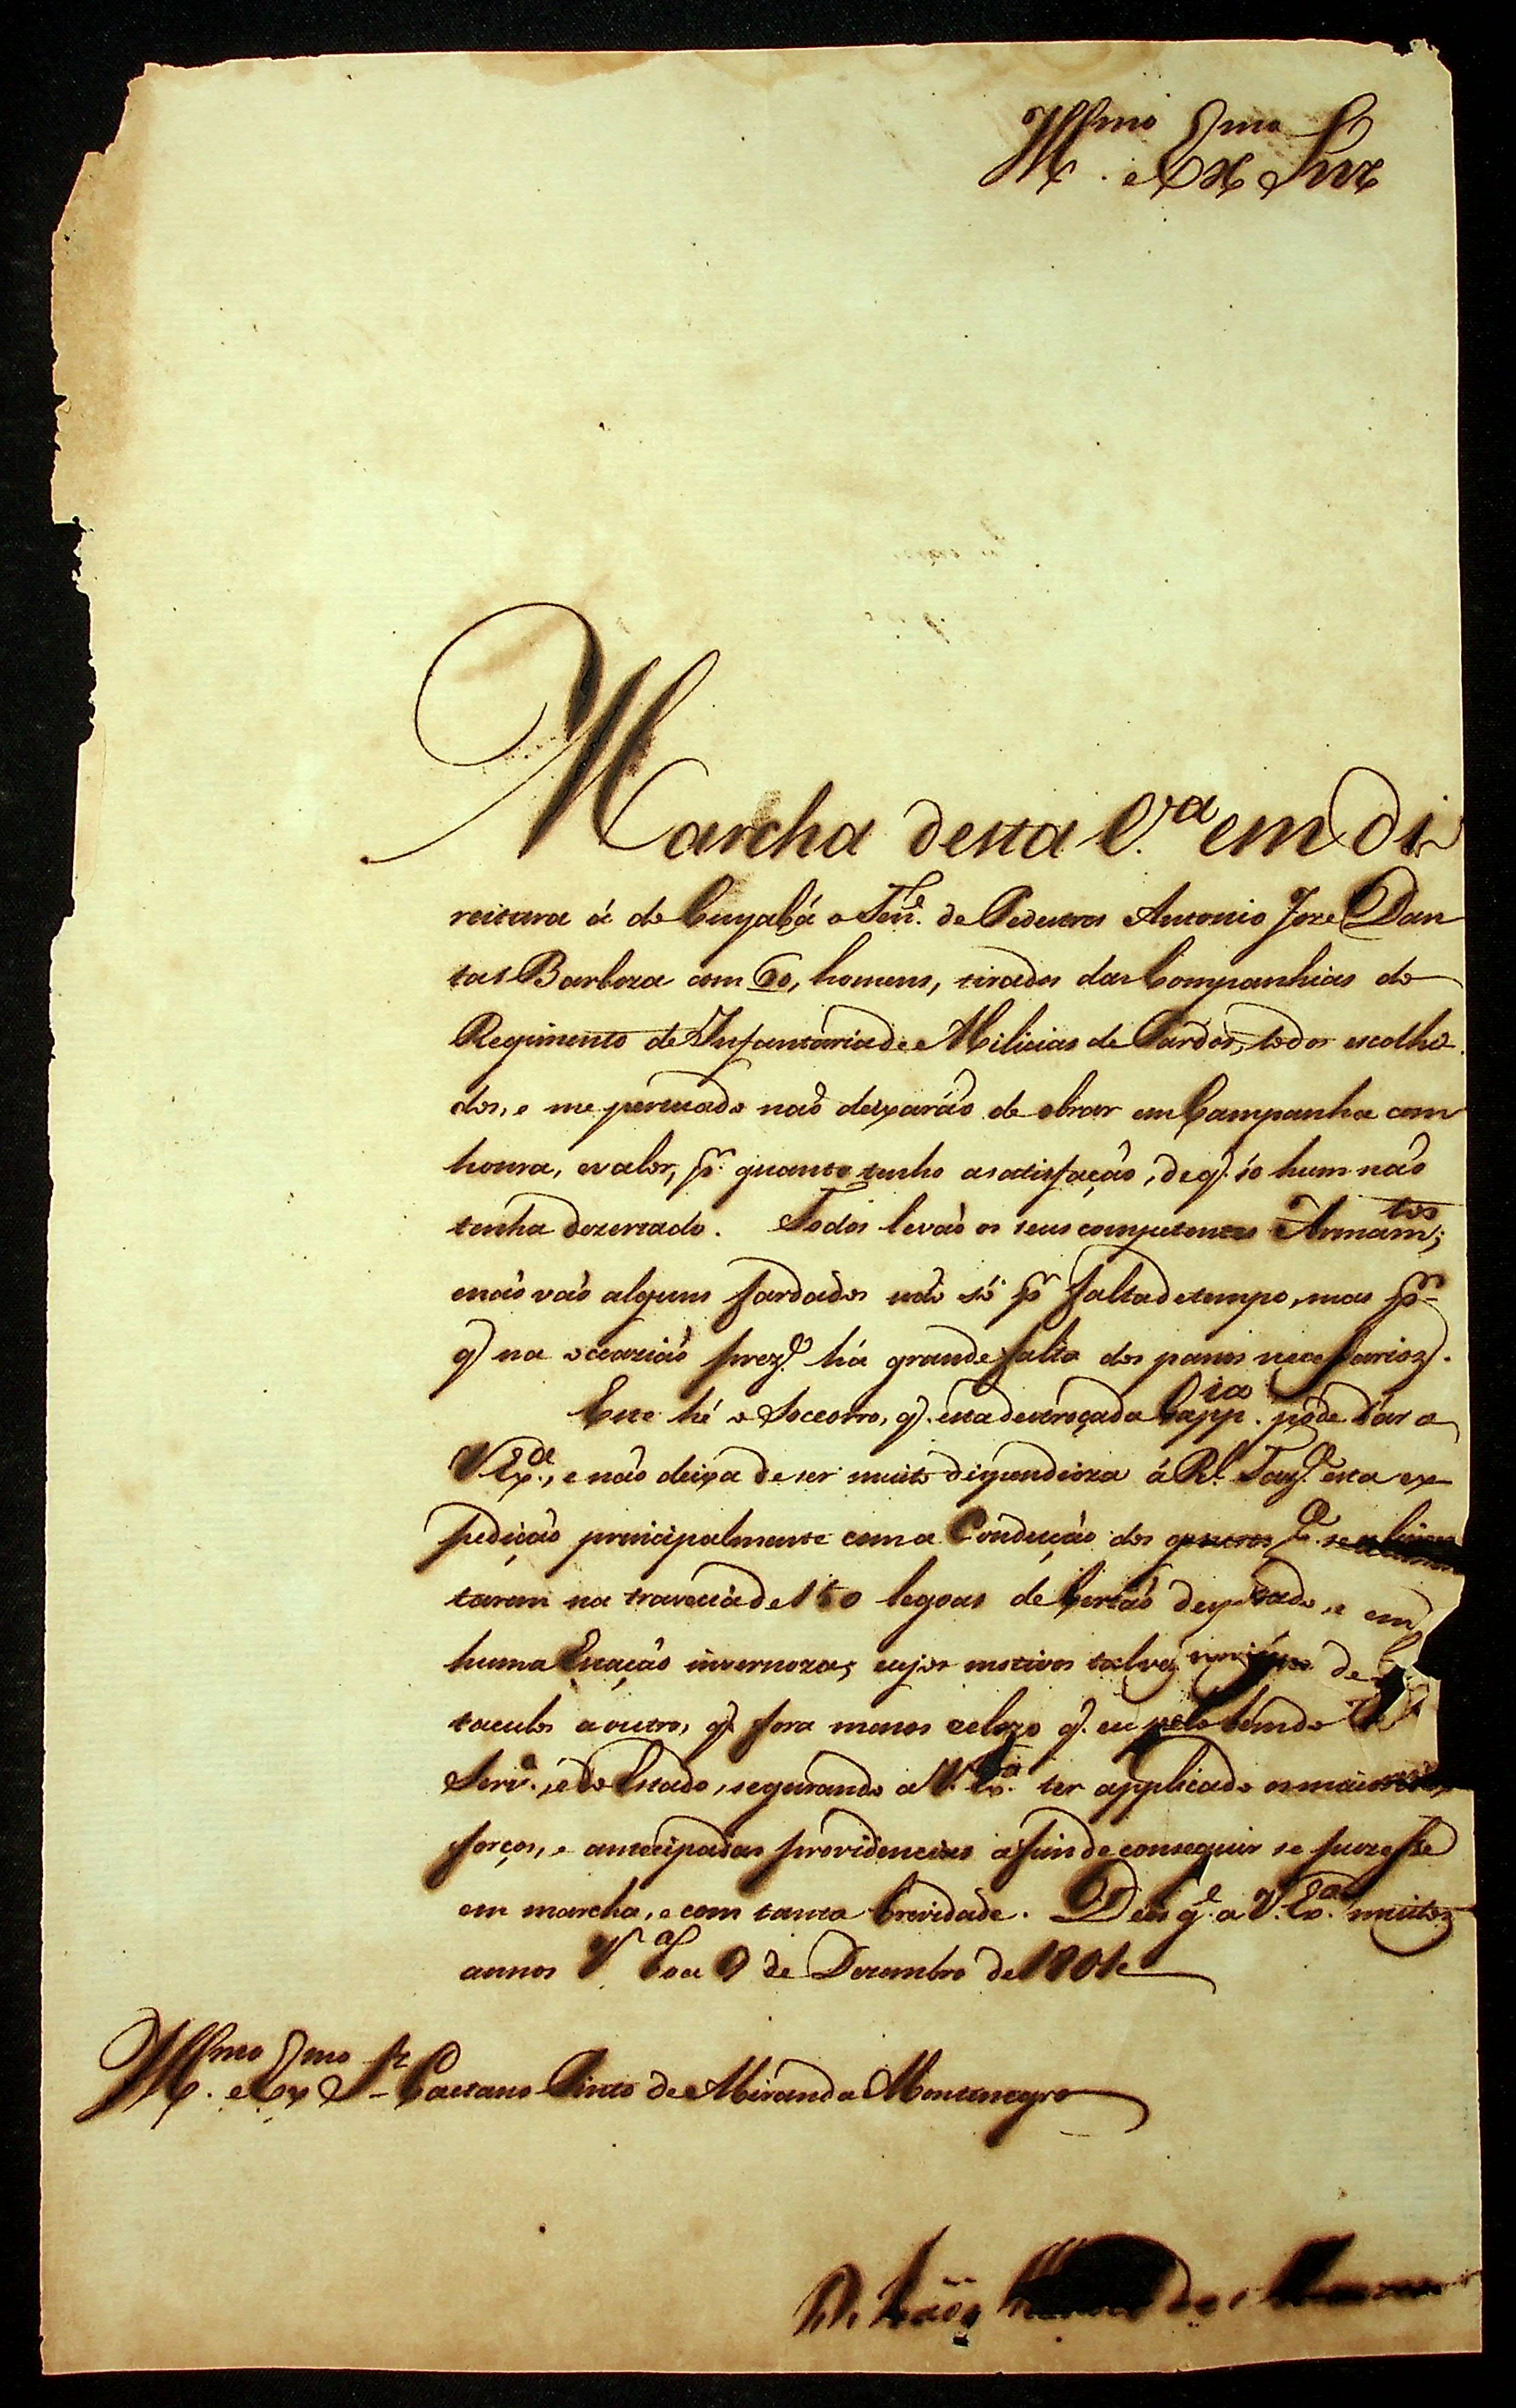 Ill.mo e Ex.mo Snr
Marcha desta V.a em di
reitura á do Cuyabá o Ten.e de Pedestres Antonio Joze Dan
tas Barboza com 60, homens, tirados das Companhias do
Regimento de Infantaria de Milicias de Pardos, todos escolhi
dos, e me persuado naõ deixaráõ de obrar em Campanha com
honra, e valor, p.r quanto tenho a satisfaçaõ, de q. só hum naõ
tenha dezertado. Todos levaõ os seus competentes Armam.tos;
e naõ vaõ alguns fardados naõ só p.r falta de tempo, mas p.r
q na occaziaõ prez.e há grande falta dos panos necessarios.
Este hé o Soccorro, q. esta destroçada Capp.ia póde dar a
V Ex.a, e naõ deixa de ser muito dispendioza á R.l Faz.a esta ex
pediçaõ principalmente com a Conduçaõ dos generos q. se alimen
tarem na travessia de 150 legoas de Certaõ despovoado, e em
huma Estaçaõ invernoza; cujos motivos talvez de
taculos a outro, q. fora menos zelozo q. eu pelo bem do
Serv.o, e do Estado, segurando a V. Ex.a ter applicado os maiores
forços, e antecipadas providencias afim de conseguir se puzesse
em marcha, e com tanta brevidade. Deus g.e a V. Ex.a muitos
annos V.a Boa 9 de Dezembro de 1801
Ill.mo e Ex.mo S.r Caetano Pinto de Miranda Montenegro
D. Joaõ